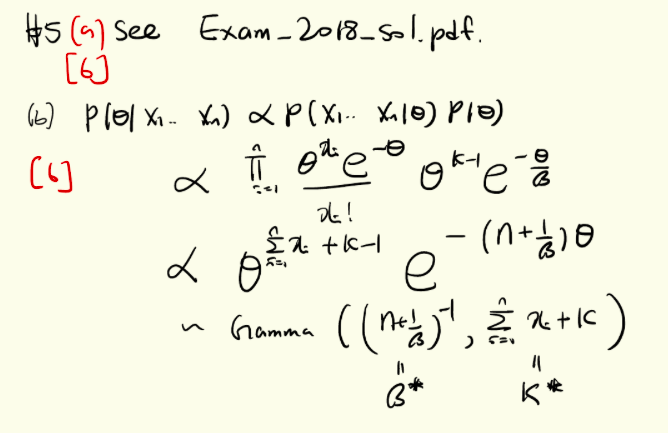 #5 (a) See Exam_2018_sol.pdf.
[6]
(b) P(θ|x₁.. xₙ) ∝ P(x₁.. xₙ|θ) P(θ)
[6] ∝ ∏ᵢ₌₁ⁿ (θ^{xᵢ} e^{-θ} / xᵢ!) θ^{k-1} e^{-θ/β}
∝ θ^{∑ᵢ₌₁ⁿ xᵢ + k-1} e^{-(n+1/β)θ}
~ Gamma ((n+1/β)^{-1}, ∑ᵢ₌₁ⁿ xᵢ + k)
= =
β* k*